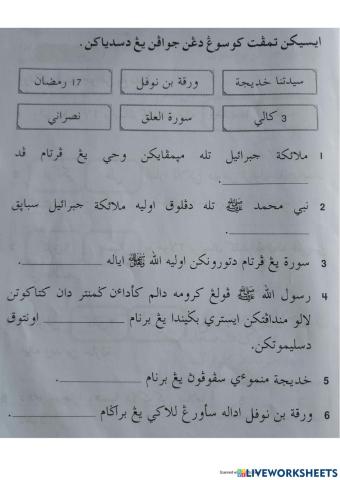 ايسيكن تمڤت كوسوڠ دڠن جواڤن يڠ دسدياكن.
سيدتنا خديجة ورقة بن نوفل 17 رمضان
3 كالي سورة العلق نصراني
1 ملائكة جبرائيل تله مپمڤايكن وحي يڠ ڤرتام ڤد
____________.
2 نبي محمد ﷺ تله دڤلوق اوليه ملائكة جبرائيل سباپق
____________.
3 سورة يڠ ڤرتام دتورونكن اوليه الله ﷻ اياله ____________.
4 رسول الله ﷺ ڤولڠ كرومه دالم كأداءن ڬمنتر دان كتاكوتن
لالو منداڤتكن ايستري بڬيندا يڠ برنام ____________ اونتوق
دسليموتكن.
5 خديجة منموءي سڤوڤون يڠ برنام ____________.
6 ورقة بن نوفل اداله سأورڠ للاكي يڠ براڬام ____________.
LIVEWORKSHEETS